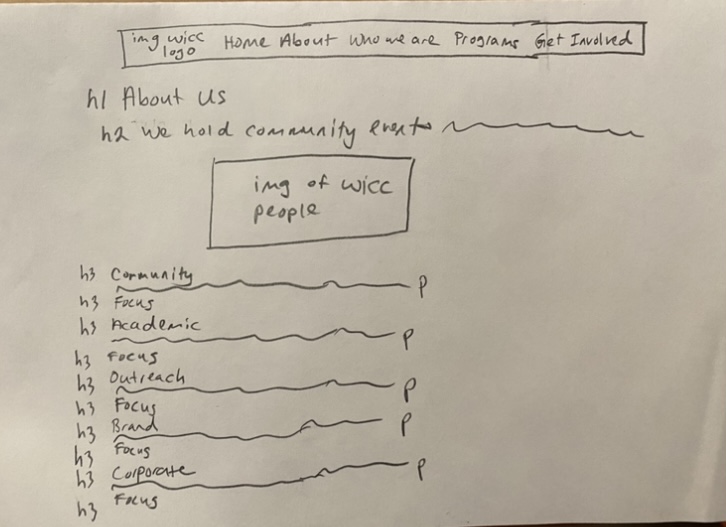 img wicc Home About Who we are Programs Get Involved
logo
h1 About Us
h2 we hold community events
img of wicc
people
h3 Community
p
h3 Focus
h3 Academic
p
h3 Focus
h3 Outreach
p
h3 Focus
h3 Brand
p
h3 Focus
h3 Corporate
p
h3 Focus